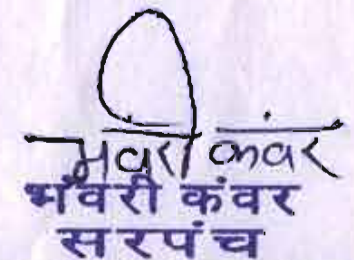 भंवरी कंवर
भंवरी कंवर
सरपंच